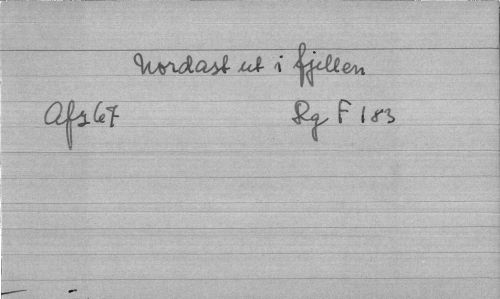 Nordast ut i fjellen
Afs 67 Rg F 183